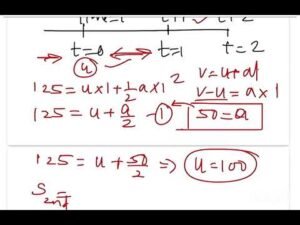 t=0 t=1 t=2
u
125 = u×1+½a×1² v=u+at
125 = u + a/2 —① v-u = a×1
50=a
125 = u + 50/2 ⇒ u=100
S2nd =